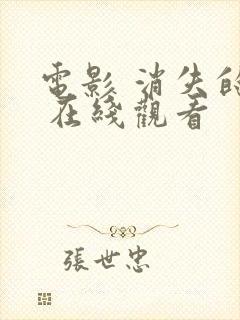 電影 消失的
在綫觀看
張世忠